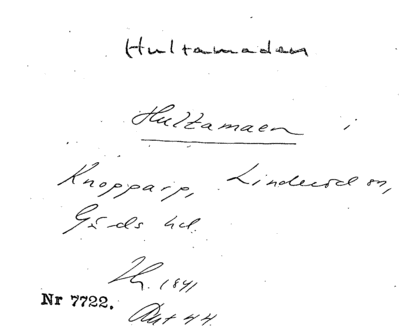 Hultamaden
Hultamaen i
Knopparp, Linderöd sn,
Gärds hd.
1841
Nr 7722. Akt 44.